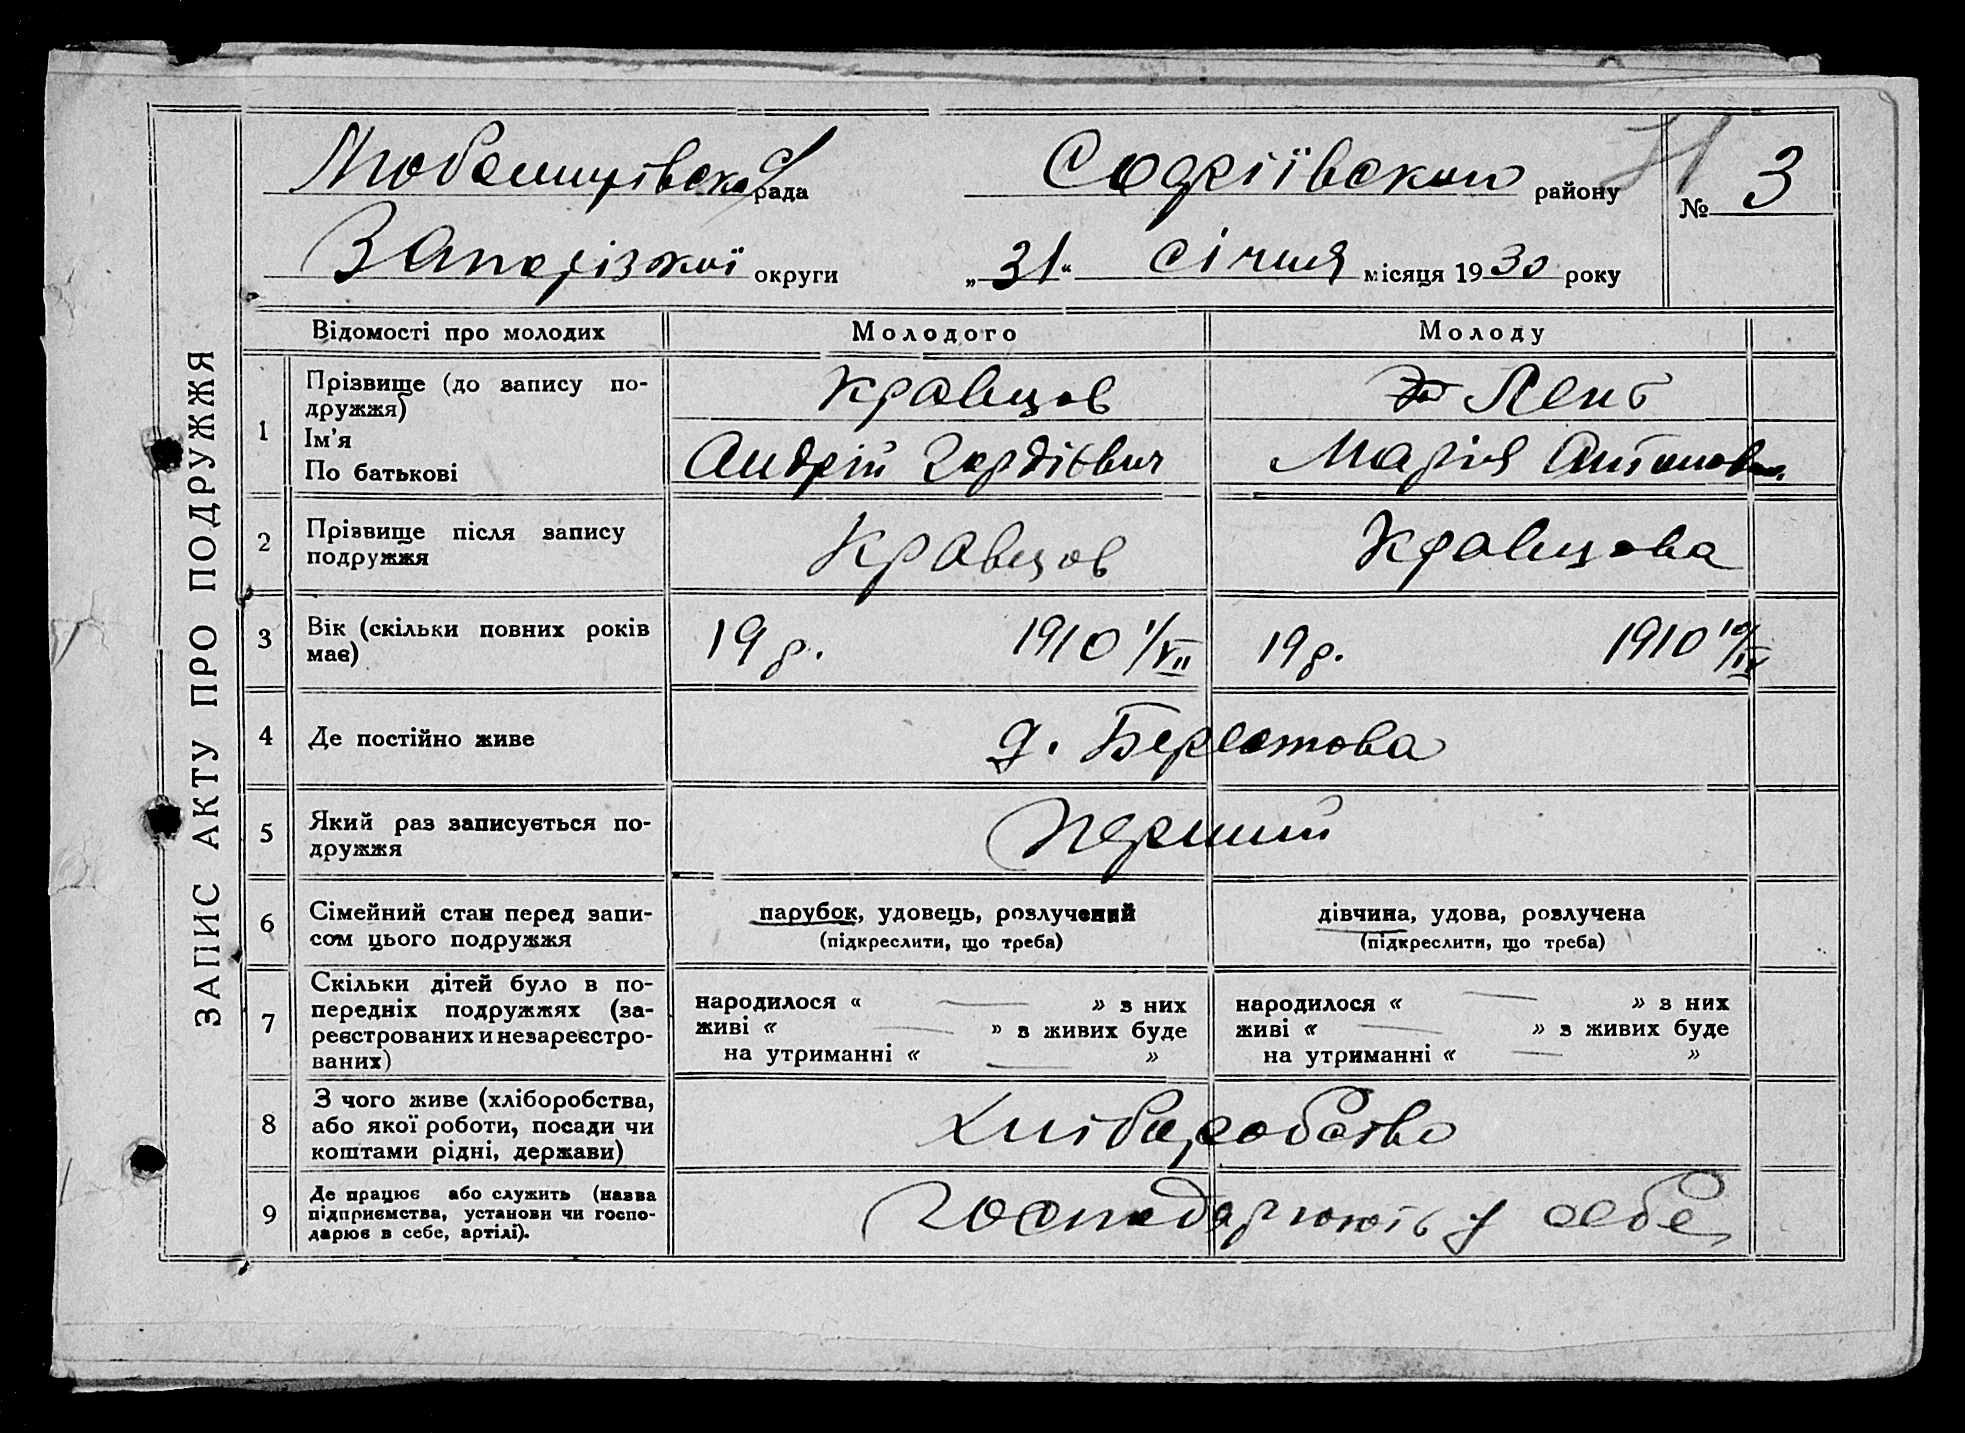 ЗАПИС АКТУ ПРО ПОДРУЖЖЯ
Любомирівска рада
Софіївскои району
№ 3
Запорізкої округи
„31“ січня місяця 1930 року
Відомості про молодих
Молодого
Молоду
1
Прізвище (до запису по-
дружжя)
Ім’я
По батькові
Кравцов
Андрій Гордієвич
Лень
Марія Антонов.
2
Прізвище після запису
подружжя
Кравцов
Кравцова
3
Вік (скільки повних років
має)
19 р. 1910 1/VII
19 р. 1910 10/IV
4
Де постійно живе
д. Берестова
5
Який раз записується по-
дружжя
перший
6
Сімейний стан перед запи-
сом цього подружжя
парубок, удовець, розлучений
(підкреслити, що треба)
дівчина, удова, розлучена
(підкреслити, що треба)
7
Скільки дітей було в по-
передніх подружжях (за-
реєстрованих и незареєстро-
ваних)
народилося « — » з них
живі « — » з живих буде
на утриманні « — »
народилося « — » з них
живі « — » з живих буде
на утриманні « — »
8
З чого живе (хліборобства,
або якої роботи, посади чи
коштами рідні, держави)
хліборобство
9
Де працює або служить (назва
підприємства, установи чи госпо-
дарює в себе, артілі).
господарюють у себе